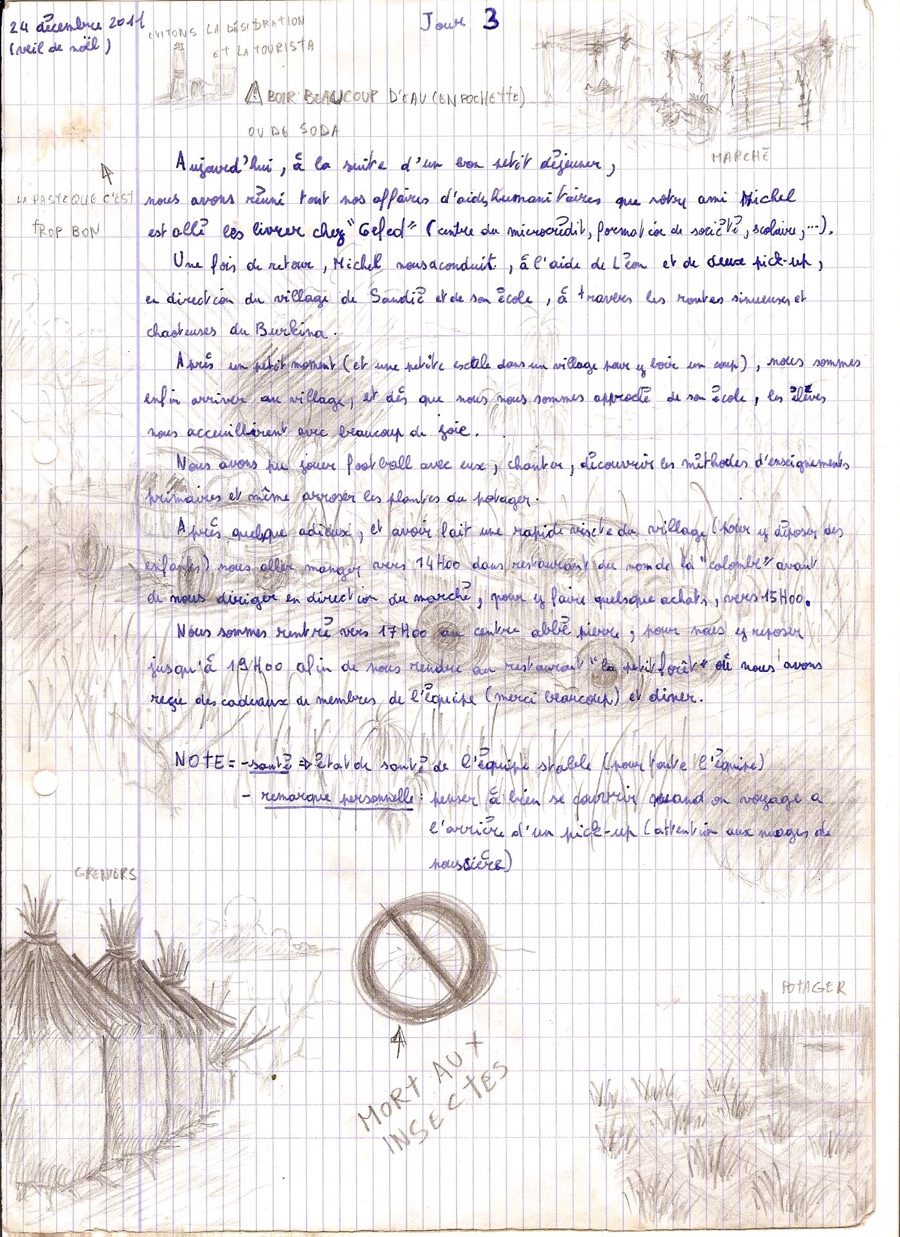 24 décembre 2011
(veil de noël)
EVITONS LA DÉSIDRATION
ET LA TOURISTA
Jour 3
⚠ BOIR BEAUCOUP D'EAU (EN POCHETTE)
OU DE SODA
MARCHÉ
LA PASTEQUE C'EST
TROP BON
Aujourd'hui, à la suite d'un bon petit déjeuner,
nous avons réuni tout nos affaires d'aide humanitaires que notre ami Michel
est allé les livrer chez "Cefed" (centre du microcrédit, formation de société, scolaire, ...).
Une fois de retour, Michel nous a conduit, à l'aide de Léon et de deux pick-up,
en direction du village de Sandié et de son école, à travers les routes sinueuses et
chaoteuses du Burkina.
Après un petit moment (et une petite escale dans un village pour y boire un coup), nous sommes
enfin arriver au village, et dès que nous nous sommes approché de son école, les élèves
nous acceuillèrent avec beaucoup de joie.
Nous avons pu jouer football avec eux, chanter, découvrir les méthodes d'enseignements
primaires et même arroser les plantes du potager.
Après quelque adieux, et avoir fait une rapide visite du village (pour y déposer des
enfants) nous aller manger vers 14H00 dans restaurant du nom de la "colombe" avant
de nous diriger en direction du marché, pour y faire quelsque achats, vers 15H00.
Nous sommes rentré vers 17H00 au centre abbé pierre, pour nous y reposer
jusqu'à 19H00 afin de nous rendre au restaurant "la petit forêt" où nous avons
reçu des cadeaux de membres de l'équipe (merci beaucoup) et diner.
NOTE = - santé ⇒ état de santé de l'équipe stable (pour toute l'équipe)
- remarque personnelle : penser à bien se couvrir quand on voyage a
l'arrière d'un pick-up (attention aux nuages de
poussière)
GRENIERS
POTAGER
MORT AUX
INSECTES